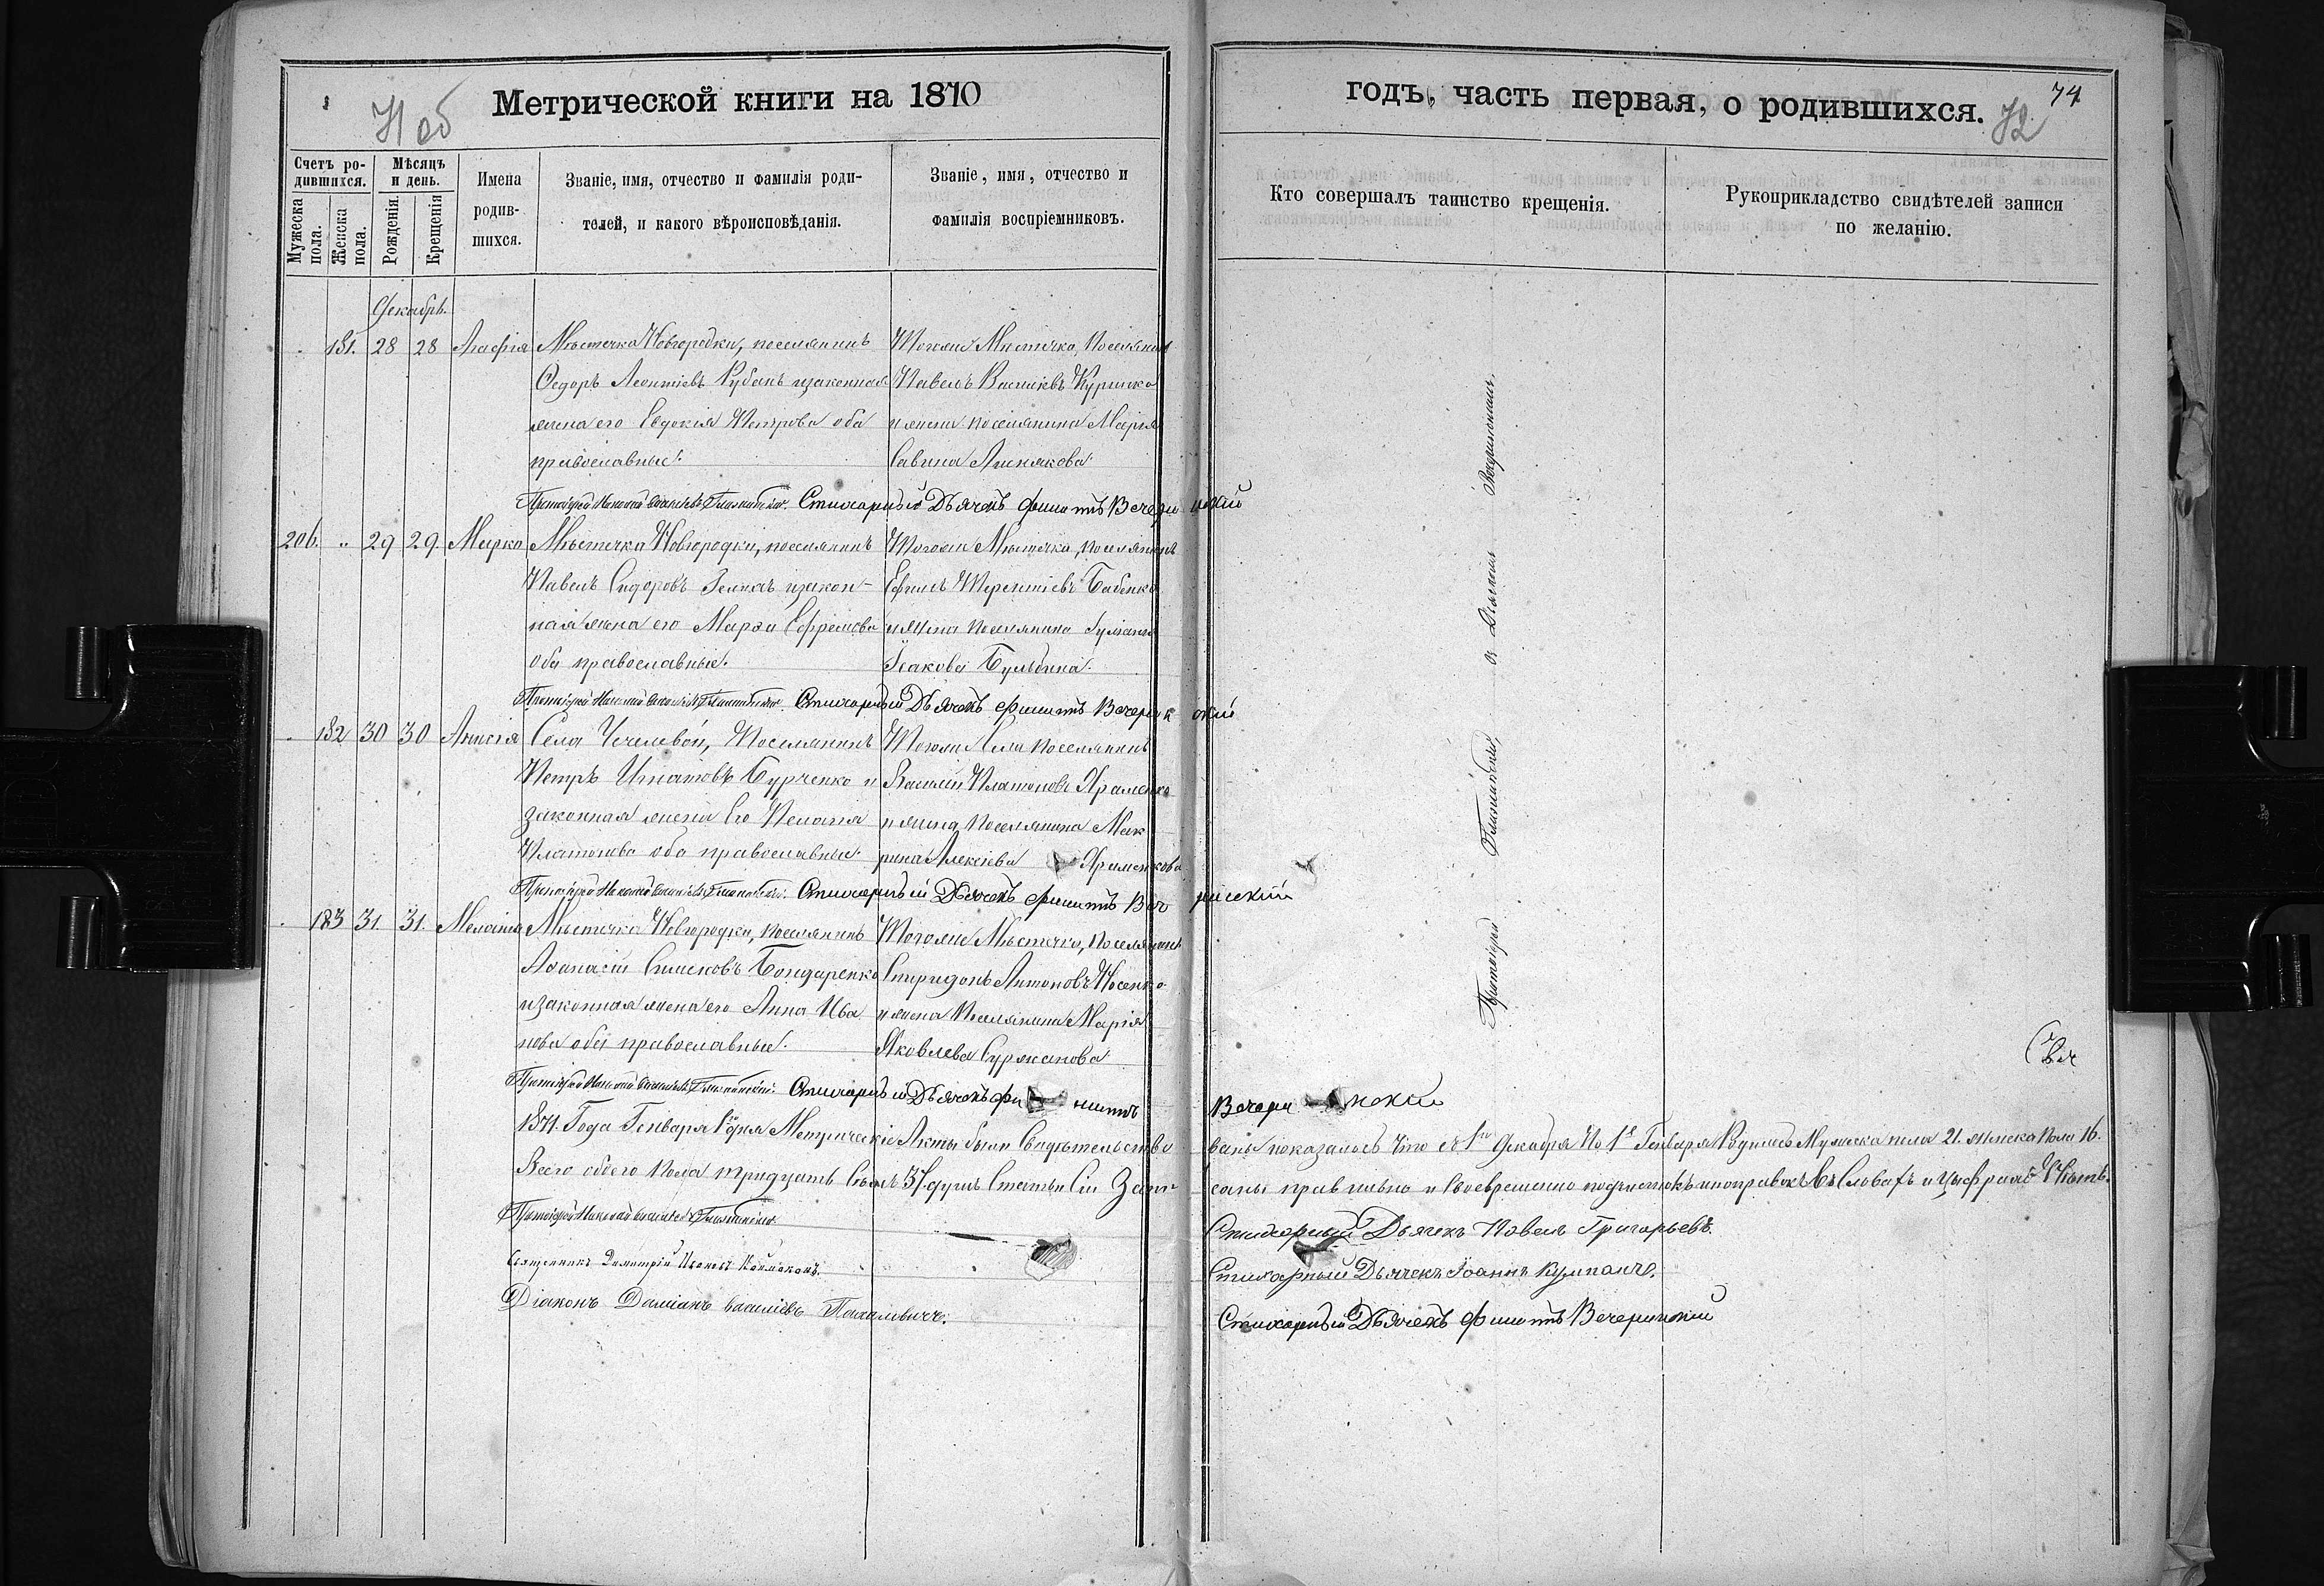 71 об
Метрической книги на 1870
годъ, часть первая, о родившихся.
72
74
Счетъ родившихся.
Мѣсяцъ и день.
Мужеска пола.
Женска пола.
Рожденія.
Крещенія
Имена родившихся.
Званіе, имя, отчество и фамилія родителей, и какого вѣроисповѣданія.
Званіе, имя, отчество и фамилія воспріемниковъ.
Кто совершалъ таинство крещенія.
Рукоприкладство свидѣтелей записи по желанію.
Декабрь.
181. 28 28 Агафія Мѣстечка Новгородки, поселянинъ
Ѳедоръ Леонтіевъ Рубанъ изаконная
жена его Евдокія Петрова оба
православные.
Тогоже Мѣстечка, Поселянинъ
Павелъ Василіевъ
и жена поселянина Марія
Савина
Протоіерей Николай Стихарный Дьячекъ Филиппъ Вечеринскій
206. „ 29 29. Марко Мѣстечка Новгородки, поселянинъ
Павелъ Сидоровъ изакон-
ная жена его Марѳа Ефремова
оба православные.
Тогоже Мѣстечка, Поселянинъ
Ефимъ Терентіевъ Бабенко
и жена поселянина
Исакова
Протоіерей Николай Стихарный Дьячекъ Филиппъ Вечеринскій
182 30 30 Анисія Села Чечелевой, Поселянинъ
Петръ Игнатовъ Бурченко и
законная жена Его Пелагія
Платонова оба православные.
Тогоже Села Поселянинъ
Василій Платоновъ Храменко
и жена Поселянина Мак
рина Алексіева Храменкова
Протоіерей Николай Стихарный Дьячекъ Филиппъ Вечеринскій
183 31. 31. Меланія Мѣстечка Новгородки, поселянинъ
Аѳанасій Бондаренко
изаконная жена его Анна Ива
нова оба православные.
Тогоже Мѣстечка, Поселянинъ
Спиридонъ Антоновъ Носенко
и жена Поселянина Марія
Яковлева Суржанова
Протоіерей Николай Стихарный Дьячекъ Филиппъ Вечеринскій
Протоіерей съ Діакономъ
1871. Года Генваря дня Метрическіе Акты были Свидѣтельство
ваны показалось что съ 1го Декабря По 1е Генваря Родилось Мужеска пола 21. женска Пола 16.
Всего обоего Пола тридцать Семь 37. душъ Статьи Сіи Запи
саны правильно и Своевременно подчистокъ ипоправокъ въ Словахъ и Цыфрахъ Нѣтъ.
Протоіерей Николай
Священникъ Димитрій Ивановъ
Діаконъ Даміанъ Василіевъ
Стихарный Дьячекъ Павелъ Григорьевъ.
Стихарный Дьячекъ Іоаннъ Кулпанъ.
Стихарный Дьячекъ Филиппъ Вечеринскій